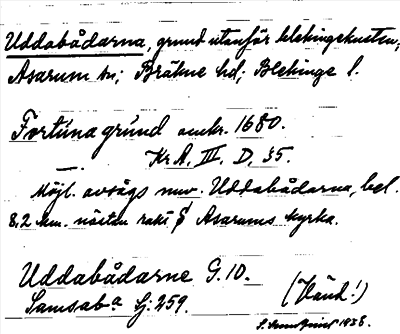 Uddabådarna, grund utanför blekingekusten;
Asarum sn; Bräkne hd; Blekinge l.
Fortúna grúnd omkr. 1680.
Kr A. III. D. 35.
Möjl. avsågs nuv. Uddabådarna, bel.
8,2 km. nästan rakt S Asarums kyrka.
Uddabådarne G. 10.
(Vänd!)
Samsab.a Sj. 259.
1938.